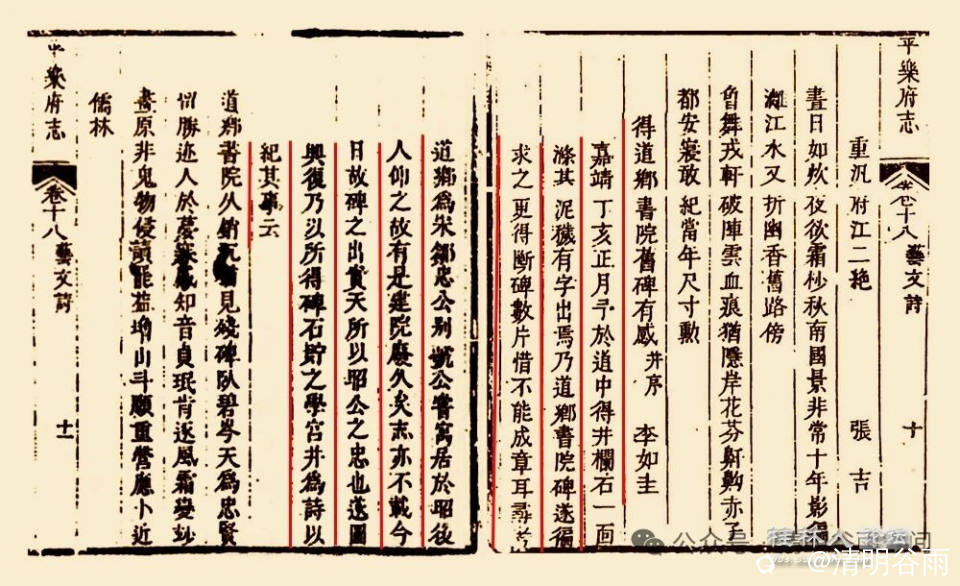 平樂府志 卷十八 藝文詩 十
重汎府江二絶 張吉
晝日如炊夜欲霜杪秋南國景非常十年影
灕江水又折幽香舊路傍
舞戎軒破陣雲血痕猶隱岸花芬 赤子
都安寢敢紀當年尺寸勳
得道鄉書院舊碑有感并序 李如圭
嘉靖丁亥正月予於道中得井欄石一面
滌其泥穢有字出焉乃道鄉書院碑遂徧
求之更得斷碑數片惜不能成章耳尋考
道鄉為宋鄒忠公别號公嘗寓居於昭後
人仰之故有是建院廢久矣志亦不載今
日故碑之出實天所以昭公之忠也遂圖
興復乃以所得碑石貯之學宮并為詩以
紀其事云
道鄉書院久銷沉猶見殘碑臥碧岑天為忠賢
留勝迹人於夢寐感知音貞珉肯逐風霜變妙
畫原非鬼物侵讀罷益增山斗願重營應卜近
儒林
平樂府志 卷十八 藝文詩 十一
公众号
@清明谷雨